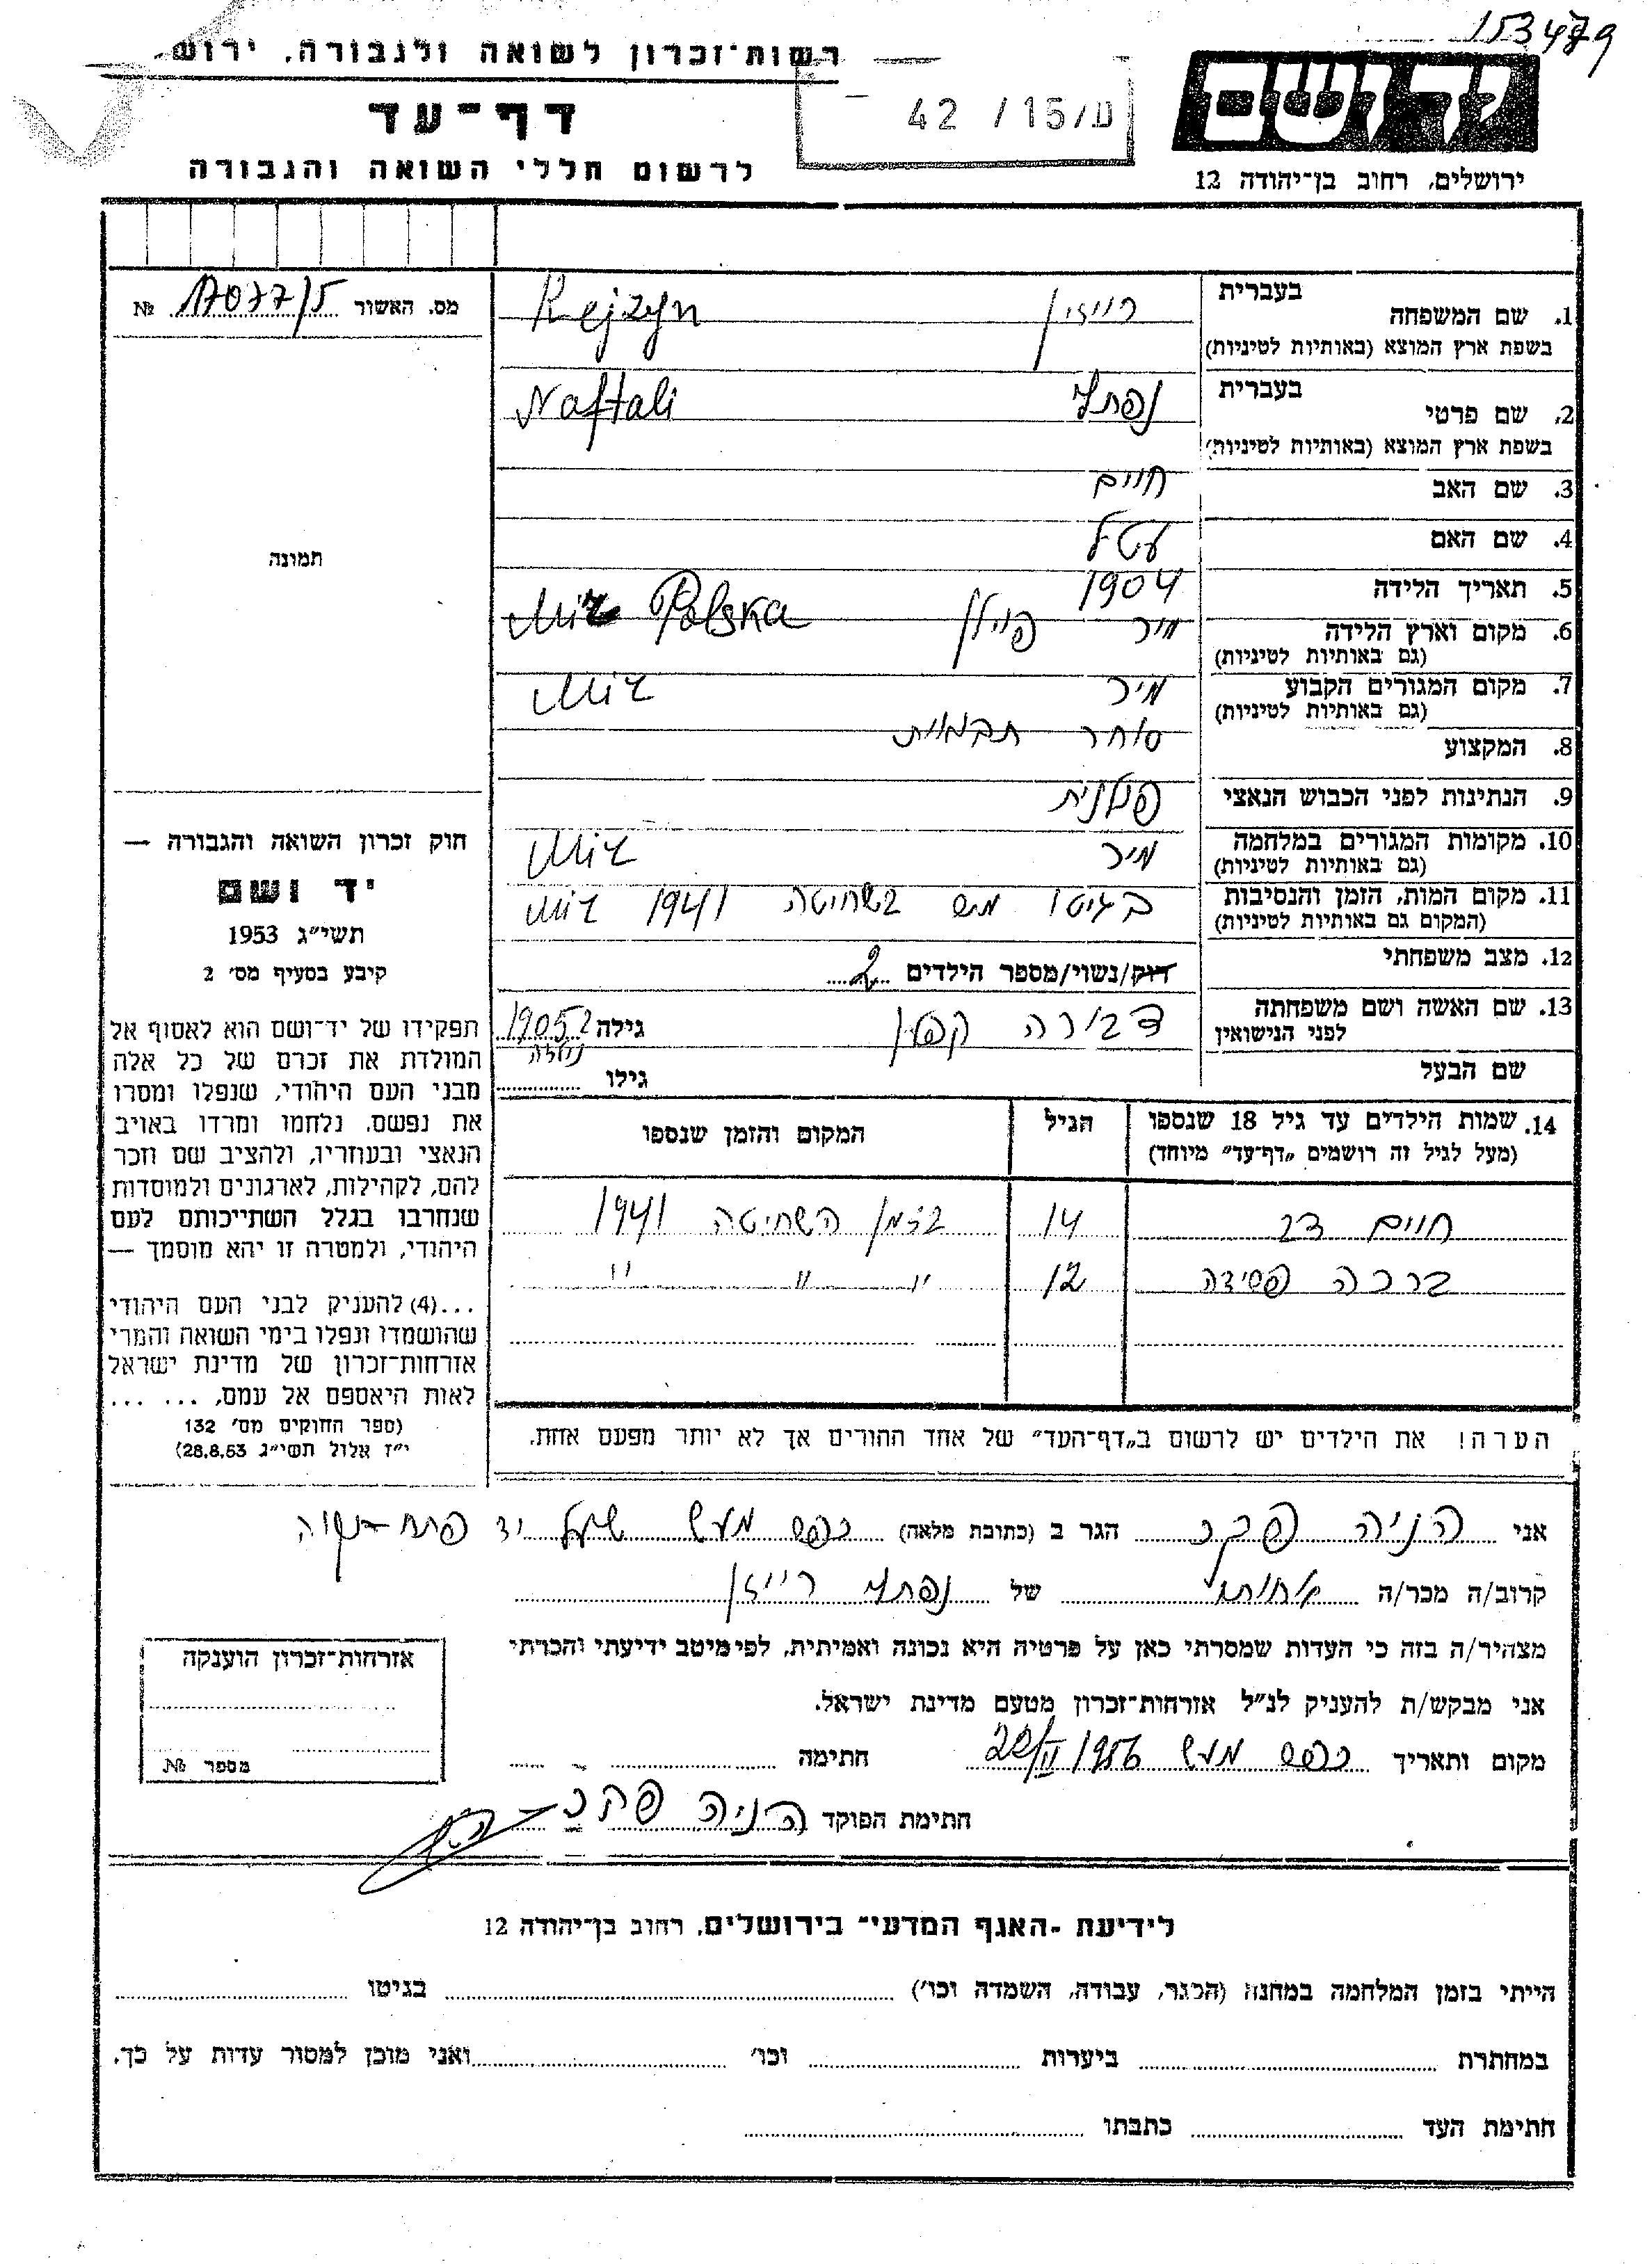 153479
רשות־זכרון לשואה ולגבורה, ירוש
דף־עד
לרשום חללי השואה והגבורה
ע/15 / 42 –
יד ושם
ירושלים, רחוב בן־יהודה 12
מס. האשור 17077/5 №
תמונה
1. שם המשפחה בעברית רייזין Rejzyn
בשפת ארץ המוצא (באותיות לטיניות)
2. שם פרטי בעברית נפתלי Naftali
בשפת ארץ המוצא (באותיות לטיניות)
3. שם האב חיים
4. שם האם עטל
5. תאריך הלידה 1904
6. מקום וארץ הלידה מיר פוילין Mir Polska
(גם באותיות לטיניות)
7. מקום המגורים הקבוע מיר Mir
(גם באותיות לטיניות)
8. המקצוע סוחר תבואות
9. הנתינות לפני הכבוש הנאצי פולנית
10. מקומות המגורים במלחמה מיר Mir
(גם באותיות לטיניות)
11. מקום המות, הזמן והנסיבות בגיטו מת בשחיטה 1941 Mir
(המקום גם באותיות לטיניות)
12. מצב משפחתי רווק/נשוי/מספר הילדים 2
13. שם האשה ושם משפחתה דבורה קפלן גילה 1905
לפני הנישואין נולדה
שם הבעל גילו
14. שמות הילדים עד גיל 18 שנספו הגיל המקום והזמן שנספו
(מעל לגיל זה רושמים „דף־עד״ מיוחד)
חיים דב 14 בזמן השחיטה 1941
ברכה 12 " " "
הערה! את הילדים יש לרשום ב„דף־העד״ של אחד ההורים אך לא יותר מפעם אחת.
חוק זכרון השואה והגבורה —
יד ושם
תשי״ג 1953
קיבע בסעיף מס׳ 2
תפקידו של יד־ושם הוא לאסוף אל
המולדת את זכרם של כל אלה
מבני העם היהודי, שנפלו ומסרו
את נפשם, נלחמו ומרדו באויב
הנאצי ובעוזריו, ולהציב שם וזכר
להם, לקהילות, לארגונים ולמוסדות
שנחרבו בגלל השתייכותם לעם
היהודי, ולמטרה זו יהא מוסמך —
...(4) להעניק לבני העם היהודי
שהושמדו ונפלו בימי השואה והמרי
אזרחות־זכרון של מדינת ישראל
לאות היאספם אל עמם, ... ...
(ספר החוקים מס׳ 132
י״ז אלול תשי״ג 28.8.53)
אני הניה הגר ב (כתובת מלאה) כפר מעש יד פתח־תקוה
קרוב/ה מכר/ה אחותו של נפתלי רייזין
מצהיר/ה בזה כי העדות שמסרתי כאן על פרטיה היא נכונה ואמיתית, לפי מיטב ידיעתי והכרתי
אני מבקש/ת להעניק לנ״ל אזרחות־זכרון מטעם מדינת ישראל.
מקום ותאריך כפר מעש 1956 חתימה
חתימת הפוקד הניה
אזרחות־זכרון הוענקה
מספר №
לידיעת ־האגף המדעי־ בירושלים, רחוב בן־יהודה 12
הייתי בזמן המלחמה במחנה (הסגר, עבודה, השמדה וכו׳) בגיטו
במחתרת ביערות וכו׳ ואני מוכן למסור עדות על כך.
חתימת העד כתבתו